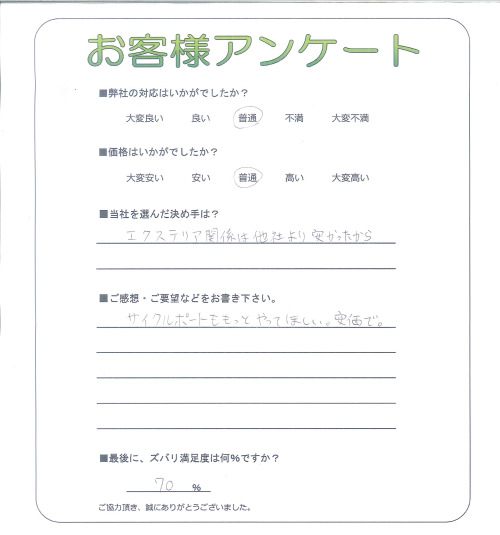 お客様アンケート
■弊社の対応はいかがでしたか？
大変良い 良い 普通 不満 大変不満
■価格はいかがでしたか？
大変安い 安い 普通 高い 大変高い
■当社を選んだ決め手は？
エクステリア関係は他社より安かったから
■ご感想・ご要望などをお書き下さい。
サイクルポートももっとやってほしい。安価で。
■最後に、ズバリ満足度は何％ですか？
70 ％
ご協力頂き、誠にありがとうございました。